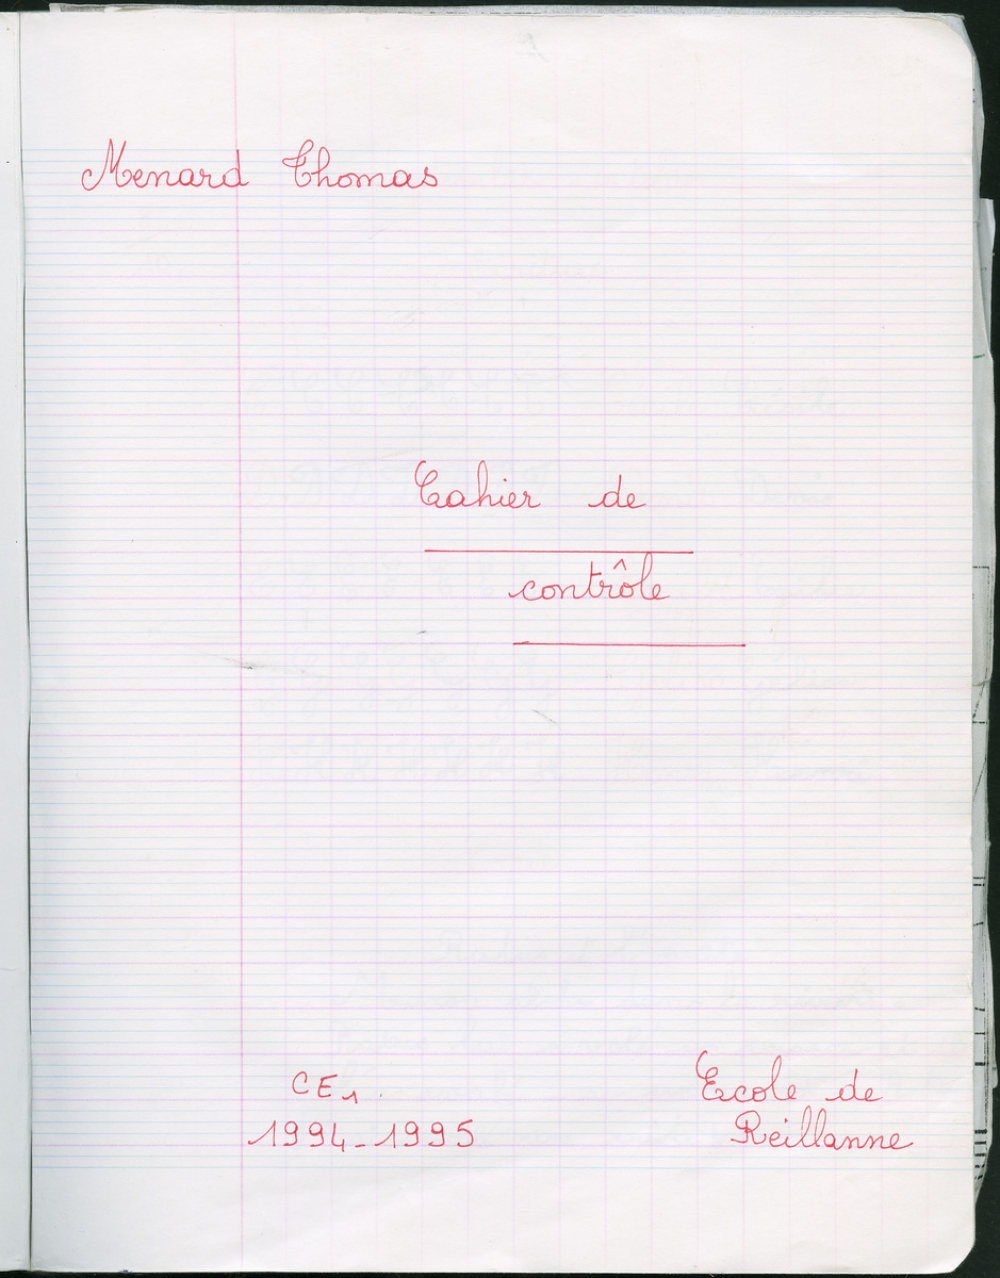 Menard Thomas
Cahier de
contrôle
CE1
1994-1995
Ecole de
Reillanne